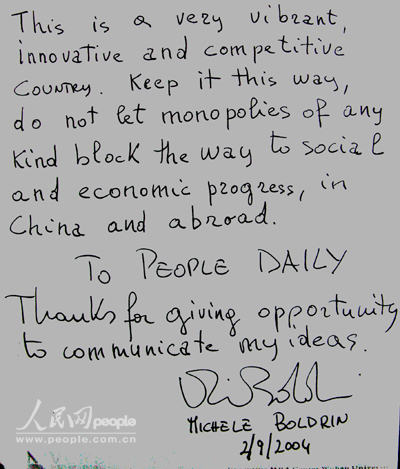 This is a very vibrant,
innovative and competitive
COUNTRY. Keep it this way,
do not let monopolies of any
kind block the way to social
and economic progress, in
China and abroad.
TO PEOPLE DAILY
Thanks for giving opportunity
to communicate my ideas.
MICHELE BOLDRIN
2/9/2004
人民网 people
www.people.com.cn